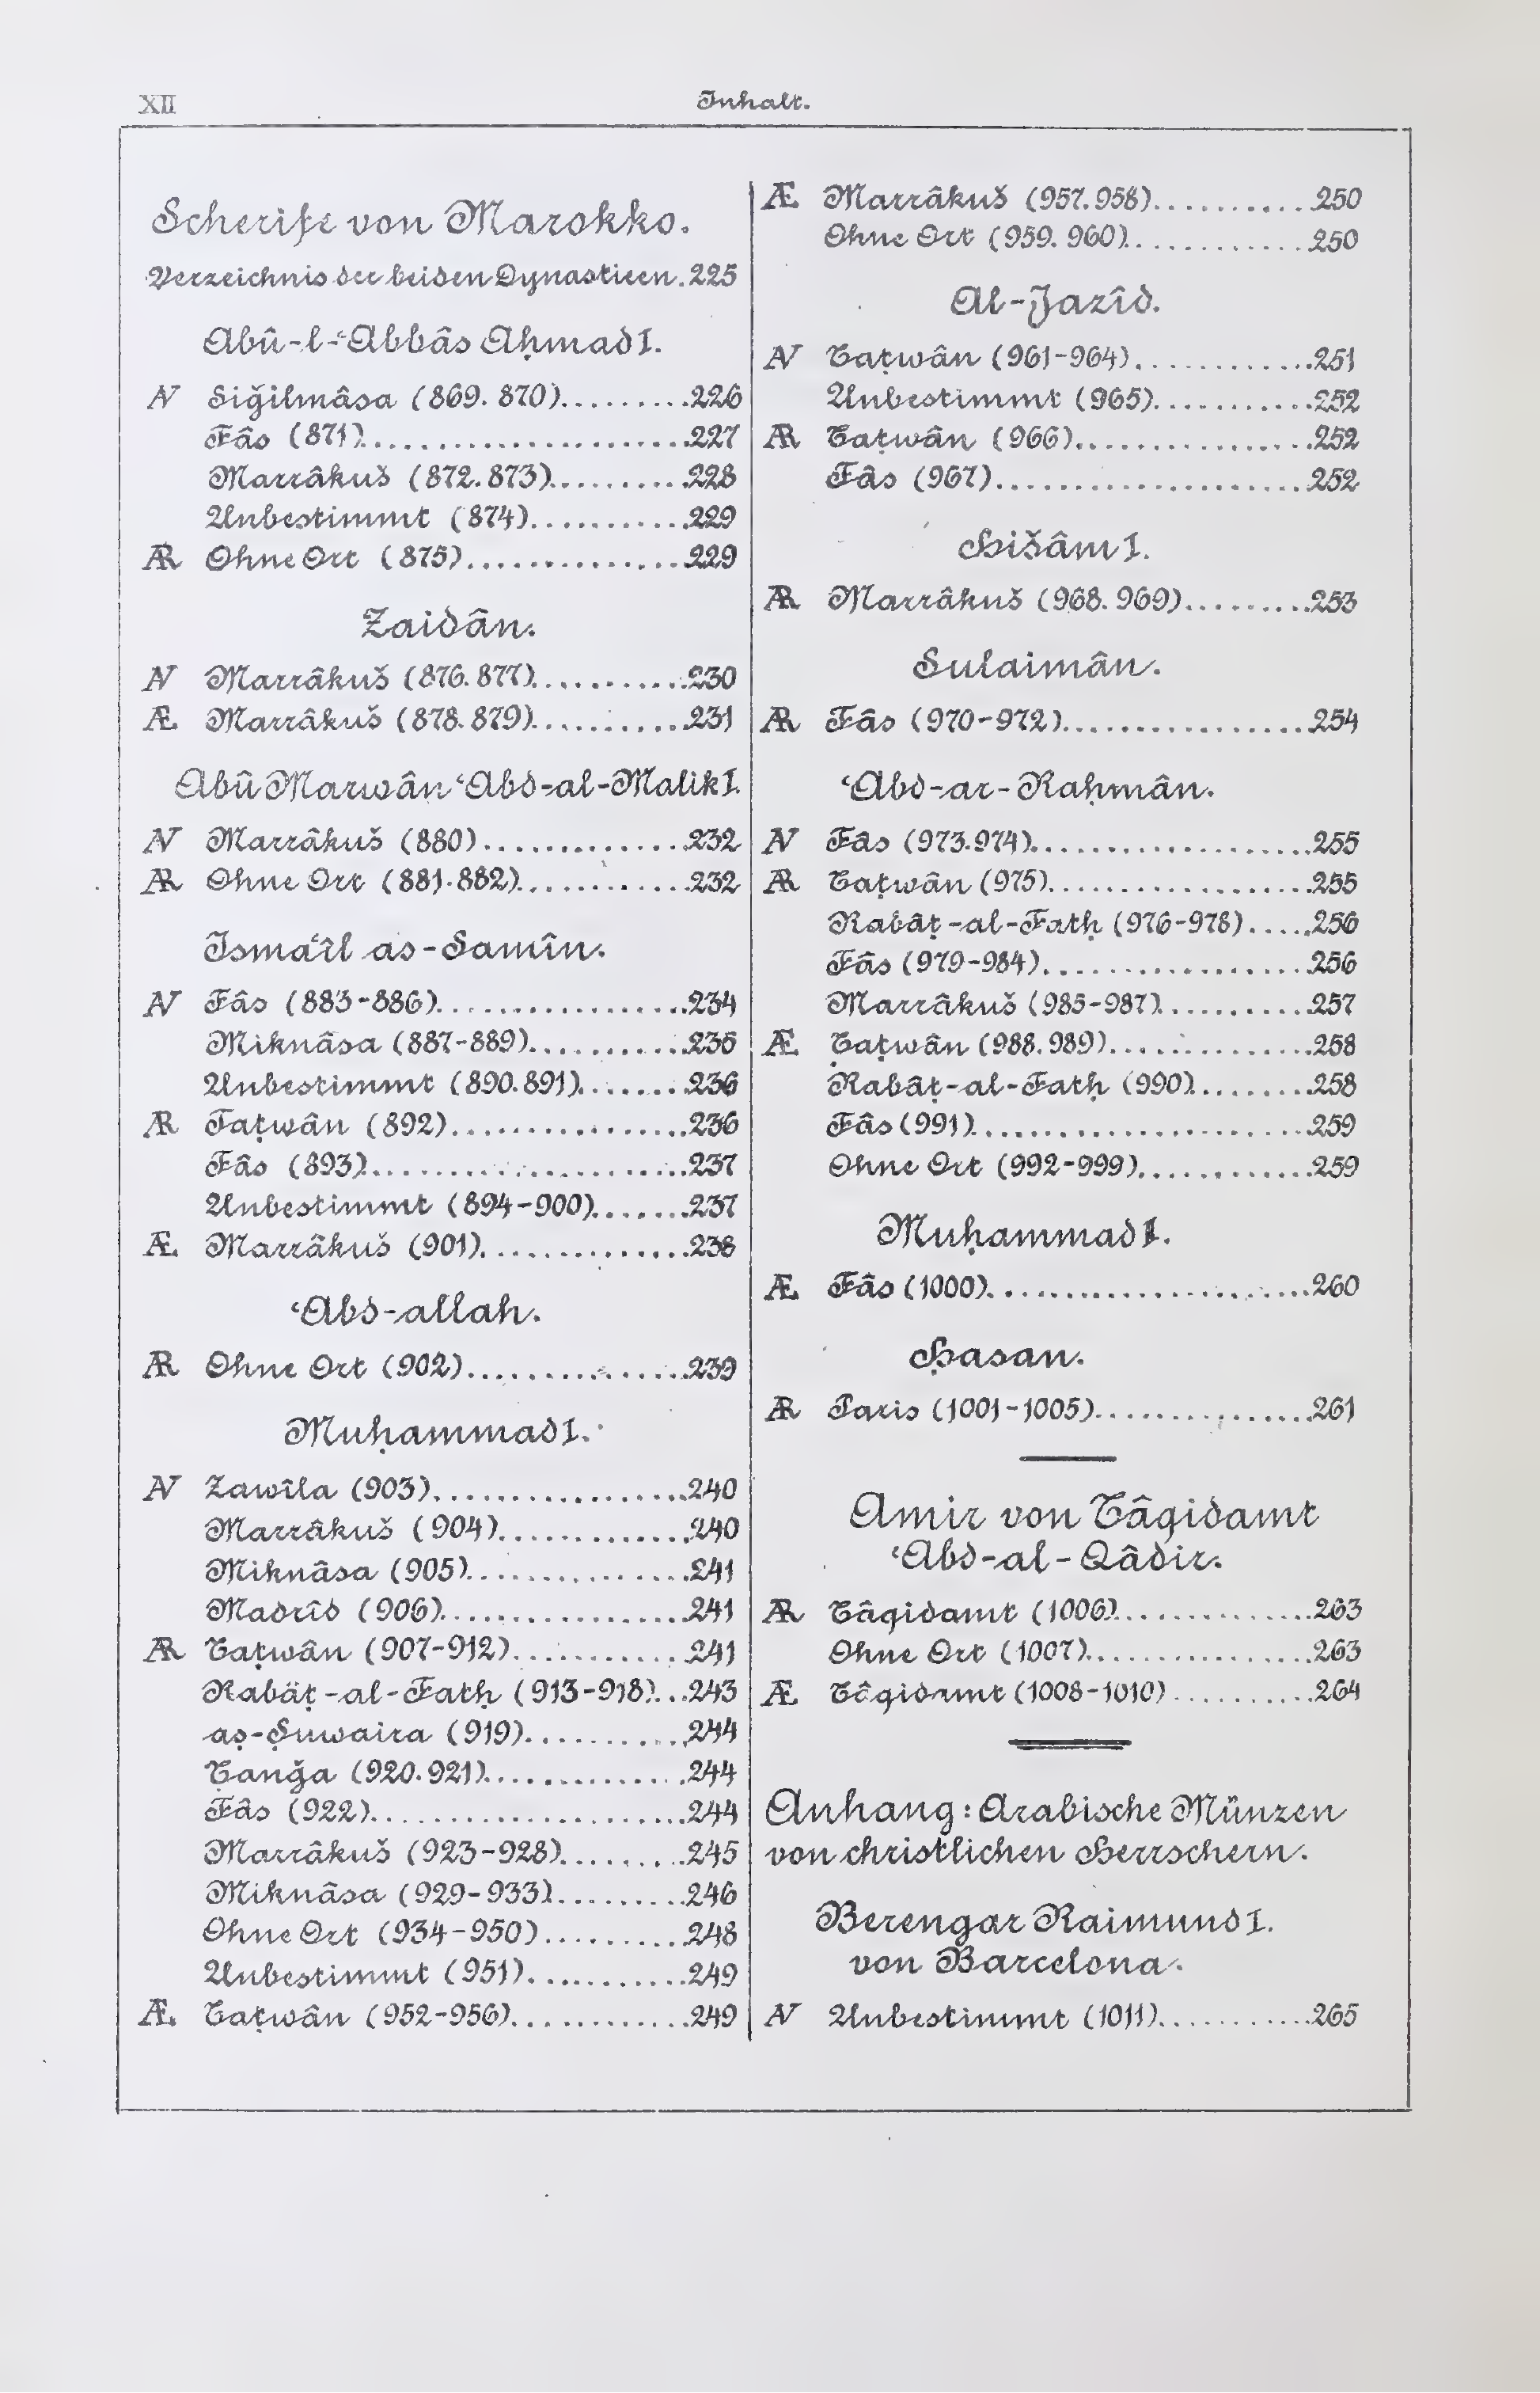 XII
Inhalt.
Scherife von Marokko.
Verzeichnis der beiden Dynastieen. 225
Abû-l-ʿAbbâs Aḥmad I.
AV Siǧilmâsa (869. 870)..........226
Fâs (871).........................227
Marrâkuš (872. 873)..........228
Unbestimmt (874)............229
AR Ohne Ort (875)................229
Zaidân.
AV Marrâkuš (876. 877)............230
Æ Marrâkuš (878. 879)............231
Abû Marwân ʿAbd-al-Malik I.
AV Marrâkuš (880)................232
AR Ohne Ort (881. 882).............232
Ismaʿîl as-Samîn.
AV Fâs (883-886)...................234
Miknâsa (887-889)............235
Unbestimmt (890. 891)........236
AR Taṭwân (892)..................236
Fâs (893)........................237
Unbestimmt (894-900).......237
Æ Marrâkuš (901)................238
ʿAbd-allah.
AR Ohne Ort (902).................239
Muḥammad I.
AV Zawîla (903)...................240
Marrâkuš (904)..............240
Miknâsa (905)................241
Madrîd (906)..................241
AR Taṭwân (907-912).............241
Rabâṭ-al-Fatḥ (913-918)...243
aṣ-Ṣuwaira (919)............244
Ṭanǧa (920. 921)...............244
Fâs (922).......................244
Marrâkuš (923-928)..........245
Miknâsa (929-933)..........246
Ohne Ort (934-950)...........248
Unbestimmt (951)............249
Æ Taṭwân (952-956).............249
Æ Marrâkuš (957. 958)............250
Ohne Ort (959. 960)..............250
Al-Jazîd.
AV Taṭwân (961-964)..............251
Unbestimmt (965)............252
AR Taṭwân (966)..................252
Fâs (967)........................252
Hišâm I.
AR Marrâkuš (968. 969)..........253
Sulaimân.
AR Fâs (970-972)...................254
ʿAbd-ar-Raḥmân.
AV Fâs (973. 974).....................255
AR Taṭwân (975)....................255
Rabâṭ-al-Fatḥ (976-978).....256
Fâs (979-984)....................256
Marrâkuš (985-987)............257
Æ Taṭwân (988. 989)...............258
Rabâṭ-al-Fatḥ (990).........258
Fâs (991).........................259
Ohne Ort (992-999).............259
Muḥammad I.
Æ Fâs (1000)........................260
Ḥasan.
AR Paris (1001-1005)................261
Amir von Tâqidamt
ʿAbd-al-Qâdir.
AR Tâqidamt (1006)..............263
Ohne Ort (1007)................263
Æ Tâqidamt (1008-1010)..........264
Anhang: Arabische Münzen
von christlichen Herrschern.
Berengar Raimund I.
von Barcelona.
AV Unbestimmt (1011)...........265